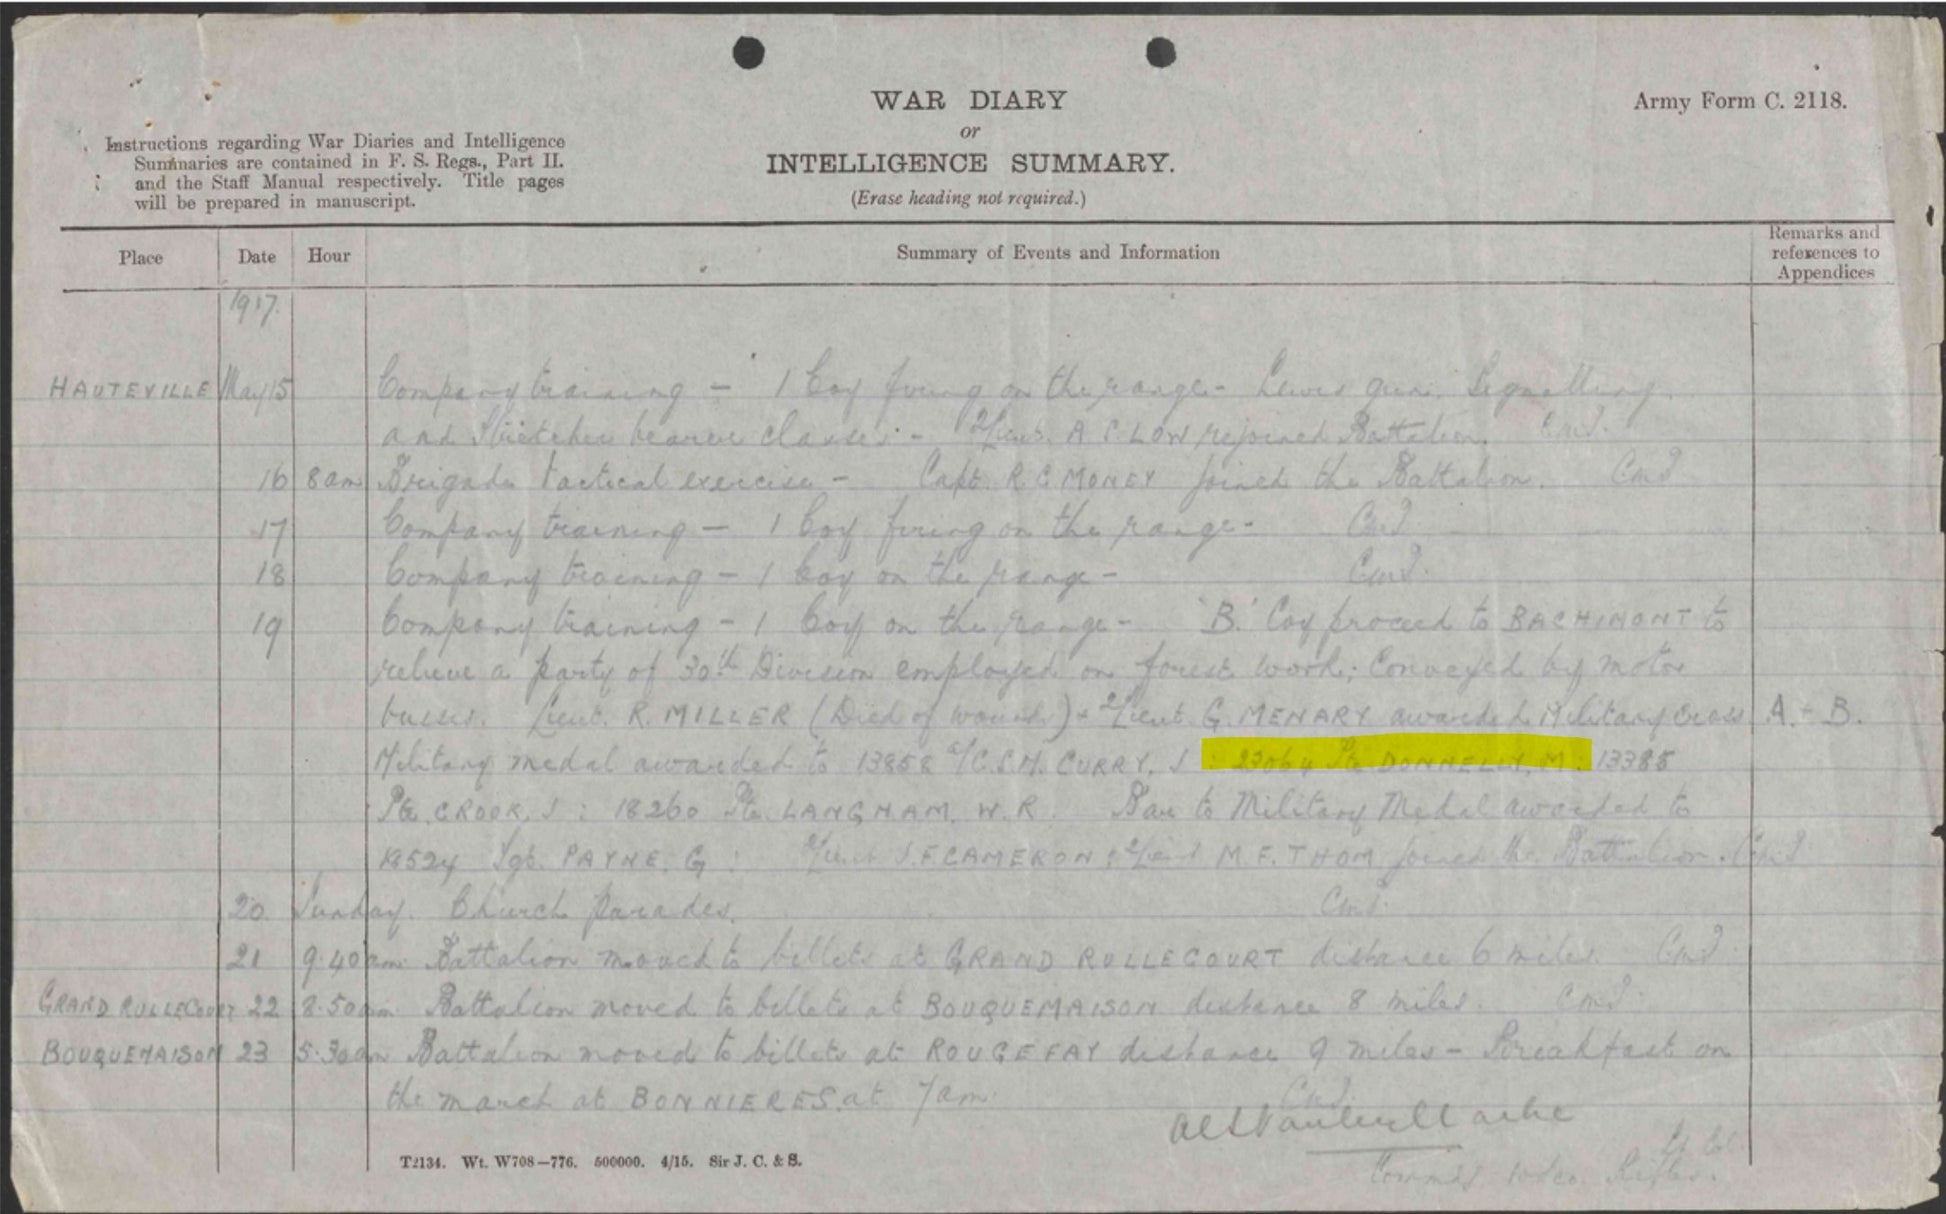 WAR DIARY
or
INTELLIGENCE SUMMARY.
(Erase heading not required.)
Army Form C. 2118.
Instructions regarding War Diaries and Intelligence
Summaries are contained in F. S. Regs., Part II.
and the Staff Manual respectively. Title pages
will be prepared in manuscript.
Place Date Hour Summary of Events and Information Remarks and references to Appendices
1917.
HAUTEVILLE May 15 Company training - 1 Coy firing on the range - Lewis gun, Signalling
and Stretcher bearer classes - 2/Lieut. A S. LOW rejoined Battalion.
16 8 am Brigade tactical exercise - Capt. R C. MONEY joined the Battalion.
17 Company training - 1 Coy firing on the range -
18 Company training - 1 Coy on the range -
19 Company training - 1 Coy on the range - 'B.' Coy proceed to BACHIMONT to
relieve a party of 30th Division employed on forest work; Conveyed by motor
busses. Lieut. R. MILLER (Died of wounds) + 2/Lieut G. MENARY awarded Military Cross A. + B.
Military medal awarded to 13858 a/C.S.M. CURRY, J : 23064 Pte DONNELLY, M : 13385
Pte. CROOK, J : 18260 Pte. LANGHAM, W. R. Bar to Military Medal awarded to
18524 Sgt. PAYNE. G : 2/Lieut J.F. CAMERON : 2/Lieut M. F. THOM joined the Battalion.
20. Sunday. Church parades.
21 9.40 am Battalion moved to billets at GRAND RULLECOURT distance 6 miles.
GRAND RULLECOURT 22 8.50 am Battalion moved to billets at BOUQUEMAISON distance 8 miles.
BOUQUEMAISON 23 5.30 am Battalion moved to billets at ROUGEFAY distance 9 miles - Breakfast on
the march at BONNIERES at 7 am.
Lt Col.
Rifles.
T2134. Wt. W708-776. 500000. 4/15. Sir J. C. & S.